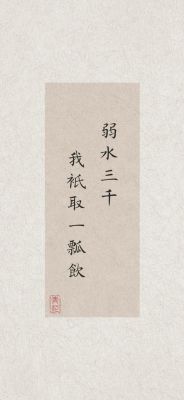 弱水三千
我衹取一瓢飲